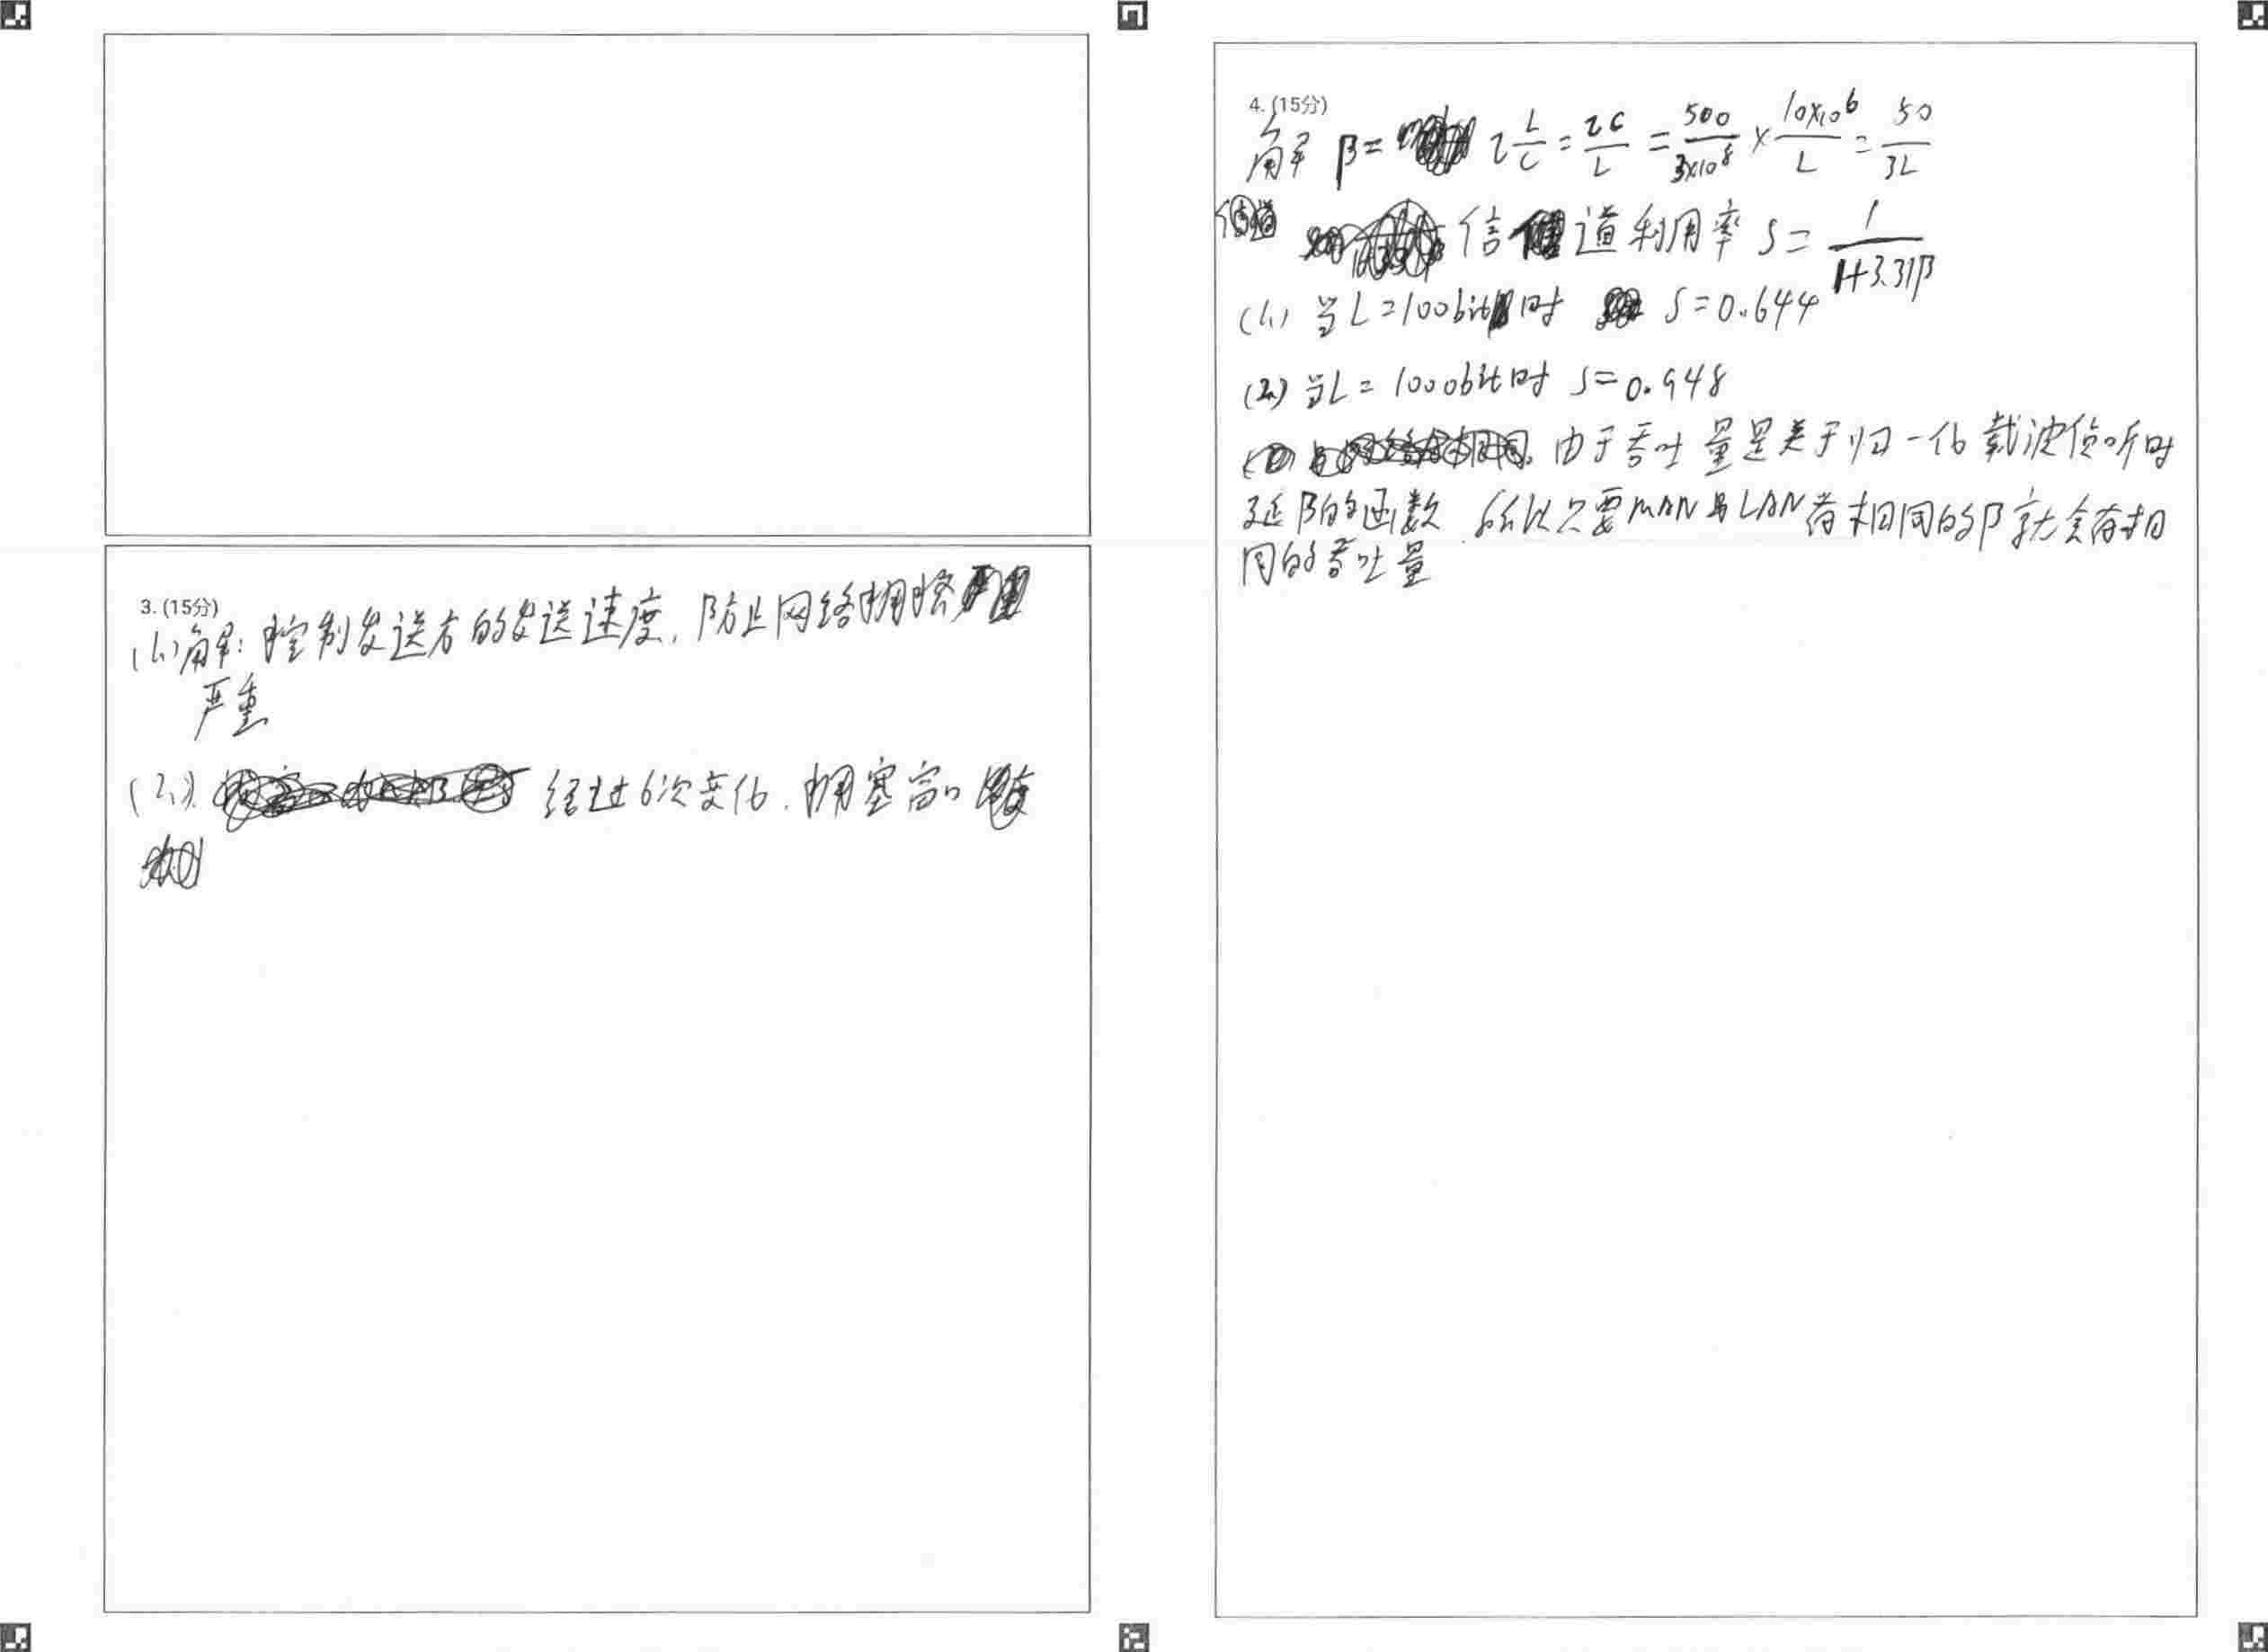 3. (15分)
(1) 解: 控制发送方的发送速度, 防止网络拥塞
严重
(2) 经过6次变化, 拥塞窗口
4. (15分)
解 β= τ L/C = τC/L = 500/3×10⁸ × 10×10⁶/L = 50/3L
信道利用率 S= 1/1+3.31β
(1) 当L=100bit时 S=0.644
(2) 当L=1000bit时 S=0.948
由于吞吐量是关于归一化载波侦听时
延β的函数, 所以只要MAN与LAN有相同的β就会有相
同的吞吐量